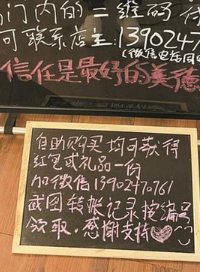 门内的二维码
可联系店主:1390247
(微信电话同
信任是最好的美德
自助购买 均可获得
红包或礼品一份
加微信13902470761
或图转账记录按编号
领取.感谢支持